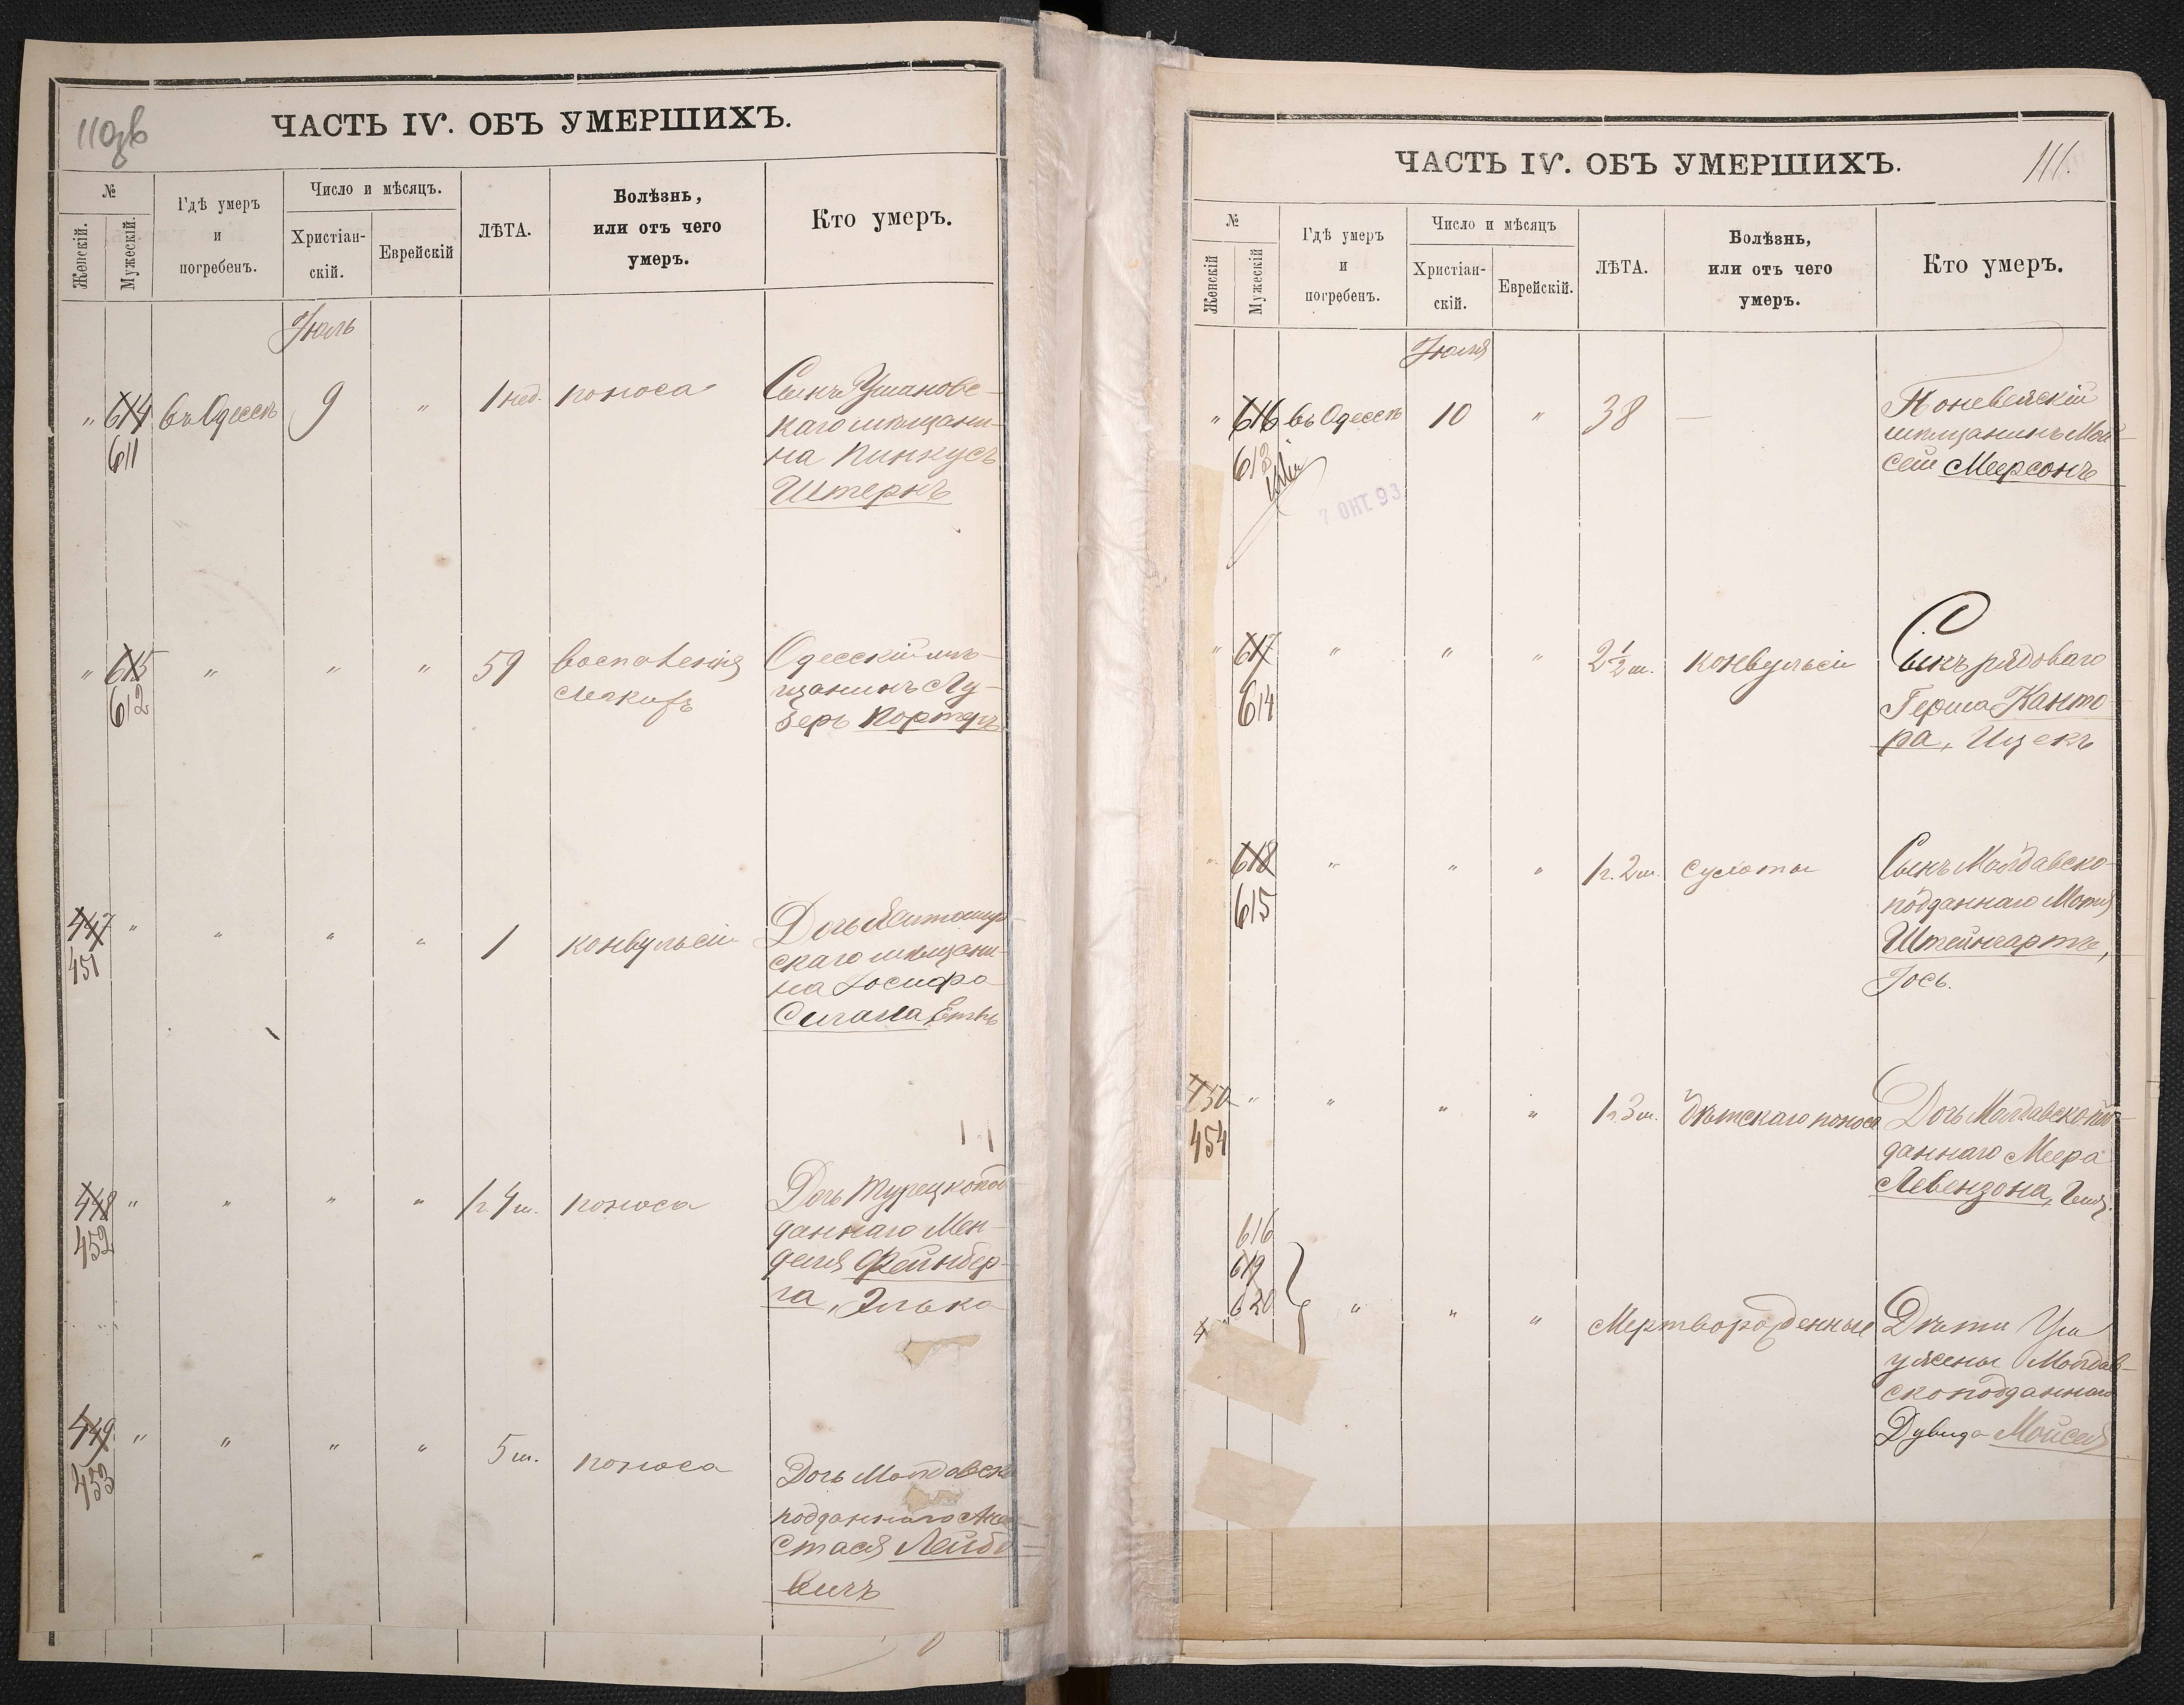 110об
ЧАСТЬ IV. ОБЪ УМЕРШИХЪ.
№
Женскій.
Мужескій.
Гдѣ умеръ
и
погребенъ.
Число и мѣсяцъ.
Христіан-
скій.
Еврейскій
ЛѢТА.
Болѣзнь,
или отъ чего
умеръ.
Кто умеръ.
Іюль
" 614 въ Одессѣ 9 " 1 нед. поноса
611
Сынъ
каго мѣщани-
на Пинкусъ
Штернъ
" 615 " " " 59 воспаленія
612
легкихъ
Одесскій мѣ-
щанинъ Лу-
зеръ
447 " " " " 1 конвульсій
451
Дочь
скаго мѣщани-
на Іосифа
Сигала,
448 " " " " 1 г. 4 м. поноса
452
Дочь Турецкопод
даннаго Мен-
деля Фейнбер-
га, Элька
449 " " " " 5 м. поноса
453
Дочь Молдавско
подданнаго
стася Лейбо
вичъ
111.
ЧАСТЬ IV. ОБЪ УМЕРШИХЪ.
№
Женскій
Мужескій
Гдѣ умеръ
и
погребенъ.
Число и мѣсяцъ
Христіан-
скій.
Еврейскій.
ЛѢТА.
Болѣзнь,
или отъ чего
умеръ.
Кто умеръ.
Іюля
" 616 въ Одессѣ 10 " 38 —
613
7 ОКТ 93
Поневейскій
мѣщанинъ Мои-
сей Меерсонъ
" 617 " " " 2½ м. конвульсій
614
Сынъ рядоваго
Герша Канто
ра, Ицекъ
" 618 " " " 1 г. 2 м. сухоты
615
Сынъ Молдавско-
подданнаго
Штейнгартъ,
Іось.
450 " " " " 1 г. 3 м. дѣтскаго поноса
454
Дочь Молдавскопод-
даннаго Меера
Левензона,
616
619
620 " " " Мертворожденные
Дѣти
у жены Молдав-
скоподданнаго
Дувида Мойсея